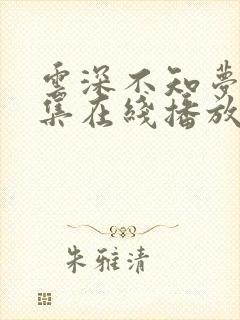 雲深不知夢
集在綫播放
朱雅清